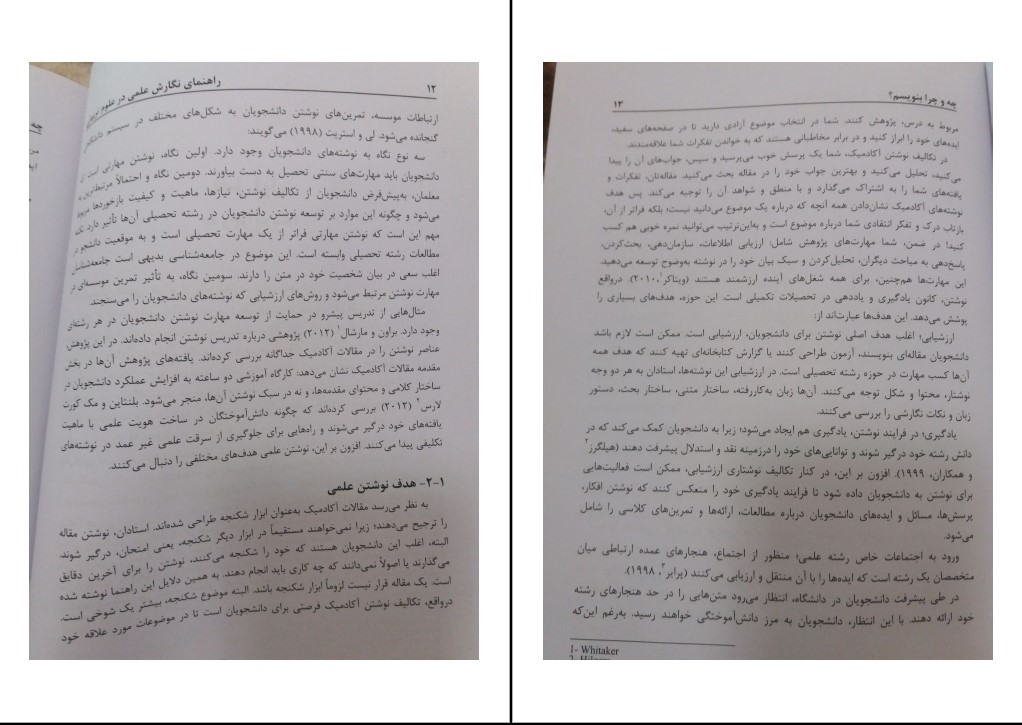 ۱۲
راهنمای نگارش علمی در علوم
ارتباطات موسسه، تمرین‌های نوشتن دانشجویان به شکل‌های مختلف در سیستم
گنجانده می‌شود. لی و استریت (۱۹۹۸) می‌گویند:
سه نوع نگاه به نوشته‌های دانشجویان وجود دارد. اولین نگاه، نوشتن مهارتی است
دانشجویان باید مهارت‌های سنتی تحصیل به دست بیاورند. دومین نگاه و احتمالاً مرتبط‌ترین
معلمان، به‌پیش‌فرض دانشجویان از تکالیف نوشتن، نیازها، ماهیت و کیفیت بازخوردها مربوط
می‌شود و چگونه این موارد بر توسعه نوشتن دانشجویان در رشته تحصیلی آن‌ها تأثیر دارد. نکته
مهم این است که نوشتن مهارتی فراتر از یک مهارت تحصیلی است و به موقعیت دانشجو در
مطالعات رشته تحصیلی وابسته است. این موضوع در جامعه‌شناسی بدیهی است جامعه‌شناسان
اغلب سعی در بیان شخصیت خود در متن را دارند. سومین نگاه، به تأثیر تمرین موسسه‌ای در
مهارت نوشتن مرتبط می‌شود و روش‌های ارزشیابی که نوشته‌های دانشجویان را می‌سنجند.
مثال‌هایی از تدریس پیشرو در حمایت از توسعه مهارت نوشتن دانشجویان در هر رشته‌ای
وجود دارد. براون و مارشال۱ (۲۰۱۲) پژوهشی درباره تدریس نوشتن انجام داده‌اند. در این پژوهش،
عناصر نوشتن را در مقالات آکادمیک جداگانه بررسی کرده‌اند. یافته‌های پژوهش آن‌ها در بخش
مقدمه مقالات آکادمیک نشان می‌دهد: کارگاه آموزشی دو ساعته به افزایش عملکرد دانشجویان در
ساختار کلامی و محتوای مقدمه‌ها، و نه در سبک نوشتن آن‌ها، منجر می‌شود. بلنتاین و مک کورت
لارس۲ (۲۰۱۲) بررسی کرده‌اند که چگونه دانش‌آموختگان در ساخت هویت علمی با ماهیت
یافته‌های خود درگیر می‌شوند و راه‌هایی برای جلوگیری از سرقت علمی غیر عمد در نوشته‌های
تکلیفی پیدا می‌کنند. افزون بر این، نوشتن علمی هدف‌های مختلفی را دنبال می‌کنند.
۱-۲- هدف نوشتن علمی
به نظر می‌رسد مقالات آکادمیک به‌عنوان ابزار شکنجه طراحی شده‌اند. استادان، نوشتن مقاله
را ترجیح می‌دهند؛ زیرا نمی‌خواهند مستقیماً در ابزار دیگر شکنجه، یعنی امتحان، درگیر شوند.
البته، اغلب این دانشجویان هستند که خود را شکنجه می‌کنند، نوشتن را برای آخرین دقایق
می‌گذارند یا اصولاً نمی‌دانند که چه کاری باید انجام دهند. به همین دلایل این راهنما نوشته شده
است. یک مقاله قرار نیست لزوماً ابزار شکنجه باشد. البته موضوع شکنجه، بیشتر یک شوخی است.
درواقع، تکالیف نوشتن آکادمیک فرصتی برای دانشجویان است تا در موضوعات مورد علاقه خود
چه و چرا بنویسم؟
۱۳
مربوط به درس، پژوهش کنند. شما در انتخاب موضوع آزادی دارید تا در صفحه‌های سفید،
ایده‌های خود را ابراز کنید و در برابر مخاطبانی هستند که به خواندن تفکرات شما علاقه‌مندند.
در تکالیف نوشتن آکادمیک، شما یک پرسش خوب می‌پرسید و سپس، جواب‌های آن را پیدا
می‌کنید، تحلیل می‌کنید و بهترین جواب خود را در مقاله بحث می‌کنید. مقاله‌تان، تفکرات و
یافته‌های شما را به اشتراک می‌گذارد و با منطق و شواهد آن را توجیه می‌کند. پس هدف
نوشته‌های آکادمیک نشان‌دادن همه آنچه که درباره یک موضوع می‌دانید نیست؛ بلکه فراتر از آن،
بازتاب درک و تفکر انتقادی شما درباره موضوع است و به‌این‌ترتیب می‌توانید نمره خوبی هم کسب
کنید! در ضمن، شما مهارت‌های پژوهش شامل: ارزیابی اطلاعات، سازمان‌دهی، بحث‌کردن،
پاسخ‌دهی به مباحث دیگران، تحلیل‌کردن و سبک بیان خود را در نوشته به‌وضوح توسعه می‌دهید.
این مهارت‌ها هم‌چنین، برای همه شغل‌های آینده ارزشمند هستند (ویتاکر۱، ۲۰۱۰). درواقع
نوشتن، کانون یادگیری و یاددهی در تحصیلات تکمیلی است. این حوزه، هدف‌های بسیاری را
پوشش می‌دهد. این هدف‌ها عبارت‌اند از:
ارزشیابی؛ اغلب هدف اصلی نوشتن برای دانشجویان، ارزشیابی است. ممکن است لازم باشد
دانشجویان مقاله‌ای بنویسند، آزمون طراحی کنند یا گزارش کتابخانه‌ای تهیه کنند که هدف همه
آن‌ها کسب مهارت در حوزه رشته تحصیلی است. در ارزشیابی این نوشته‌ها، استادان به هر دو وجه
نوشتار، محتوا و شکل توجه می‌کنند. آن‌ها زبان به‌کاررفته، ساختار متنی، ساختار بحث، دستور
زبان و نکات نگارشی را بررسی می‌کنند.
یادگیری؛ در فرایند نوشتن، یادگیری هم ایجاد می‌شود؛ زیرا به دانشجویان کمک می‌کند که در
دانش رشته خود درگیر شوند و توانایی‌های خود را درزمینه نقد و استدلال پیشرفت دهند (هیلگرز۲
و همکاران، ۱۹۹۹). افزون بر این، در کنار تکالیف نوشتاری ارزشیابی، ممکن است فعالیت‌هایی
برای نوشتن به دانشجویان داده شود تا فرایند یادگیری خود را منعکس کنند که نوشتن افکار،
پرسش‌ها، مسائل و ایده‌های دانشجویان درباره مطالعات، ارائه‌ها و تمرین‌های کلاسی را شامل
می‌شود.
ورود به اجتماعات خاص رشته علمی؛ منظور از اجتماع، هنجارهای عمده ارتباطی میان
متخصصان یک رشته است که ایده‌ها را با آن منتقل و ارزیابی می‌کنند (پرایر۳، ۱۹۹۸).
در طی پیشرفت دانشجویان در دانشگاه، انتظار می‌رود متن‌هایی را در حد هنجارهای رشته
خود ارائه دهند. با این انتظار، دانشجویان به مرز دانش‌آموختگی خواهند رسید. به‌رغم این‌که
1- Whitaker